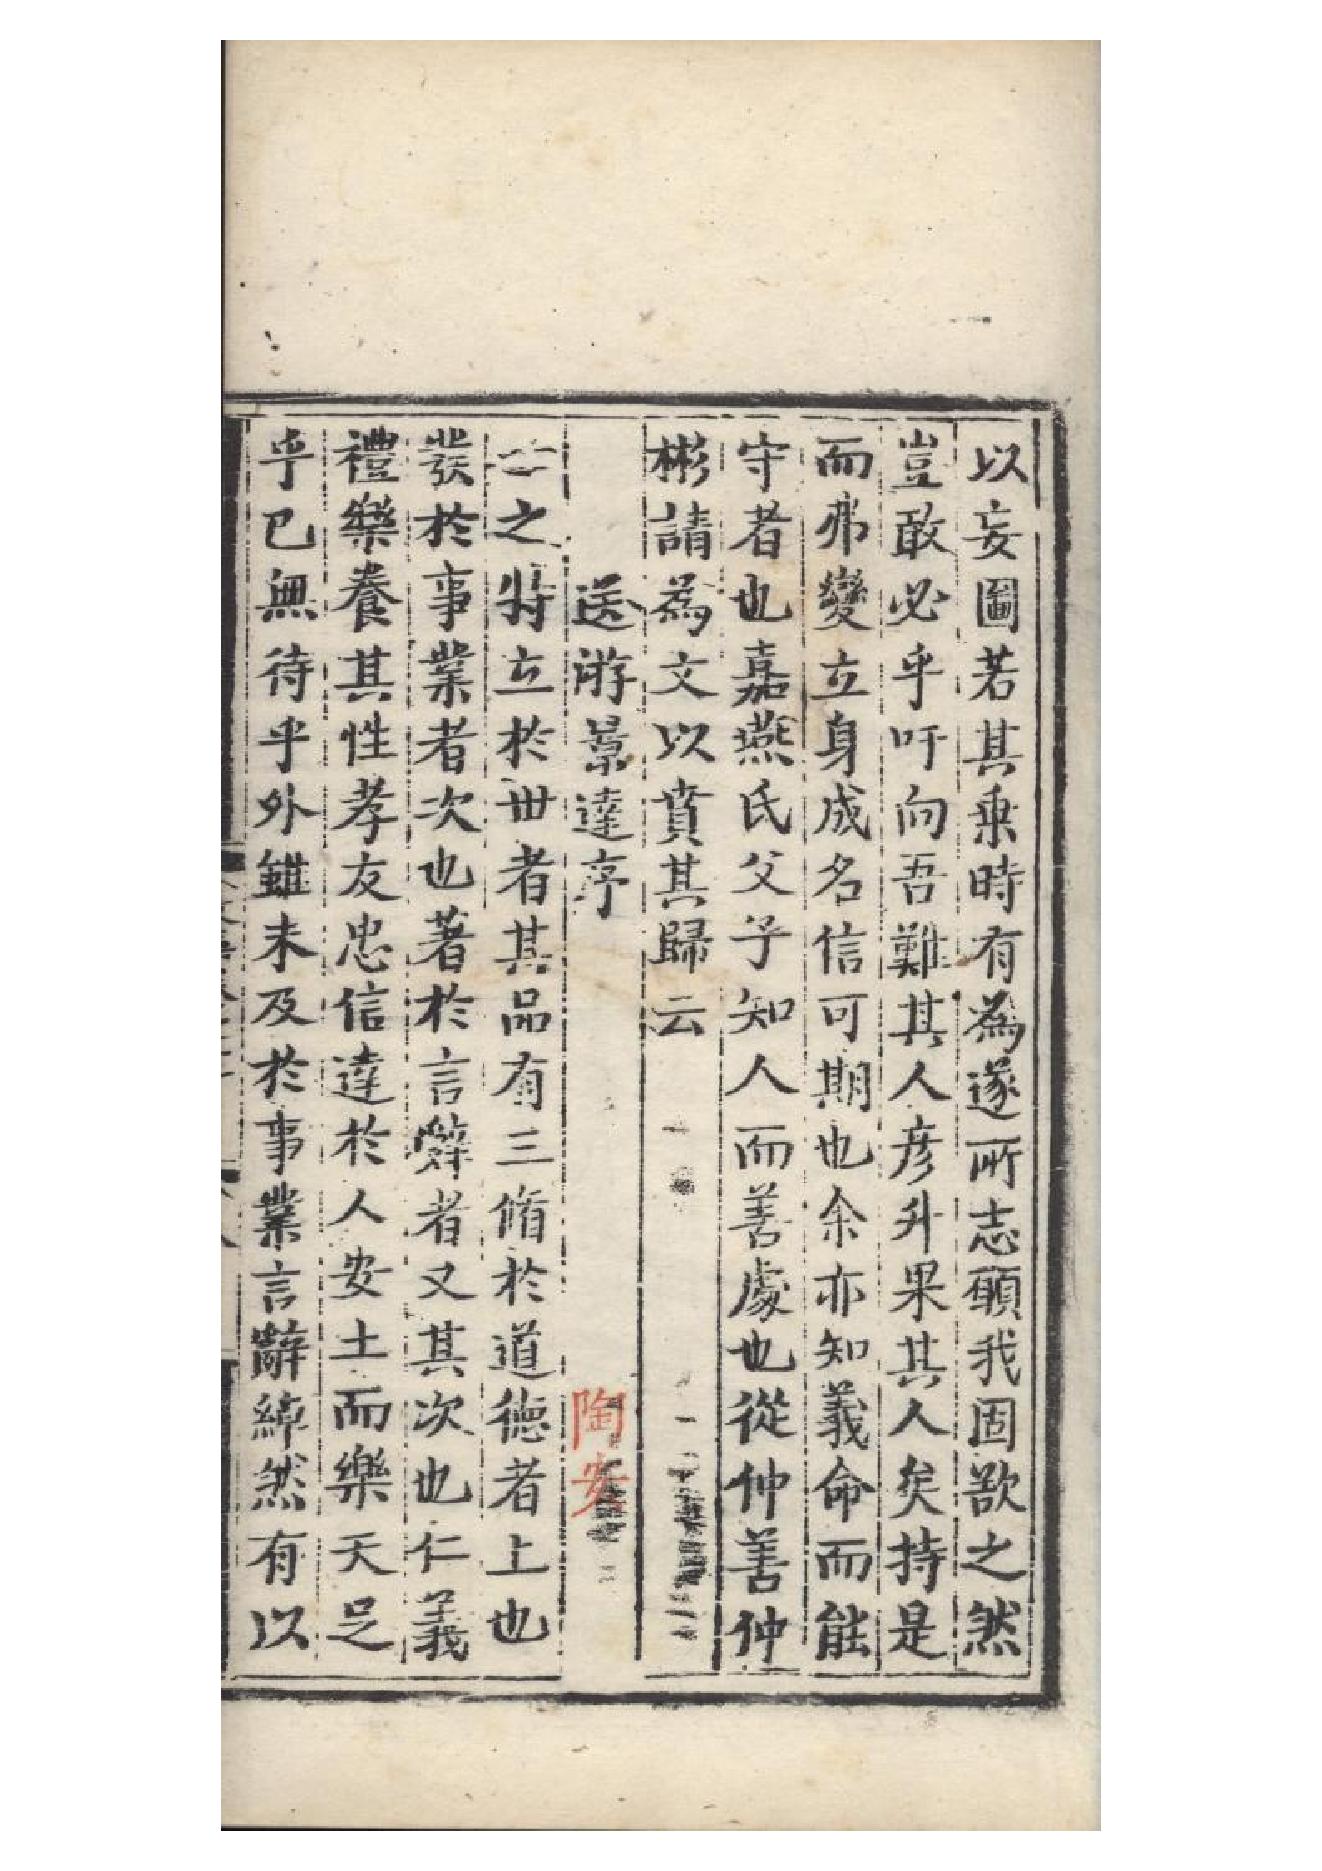 以妄圖若其乗時有為遂所志願我固欲之然
豈敢必乎吁向吾難其人彦升果其人矣持是
而弗變立身成名信可期也余亦知義命而能
守者也嘉燕氏父子知人而善處也從仲善仲
彬請為文以賁其歸云
送游景達序
陶安
之特立於丗者其品有三脩於道德者上也
發於事業者次也著於言辭者又其次也仁義
禮樂養其性孝友忠信達於人安土而樂天足
乎已無待乎外雖未及於事業言辭綽然有以